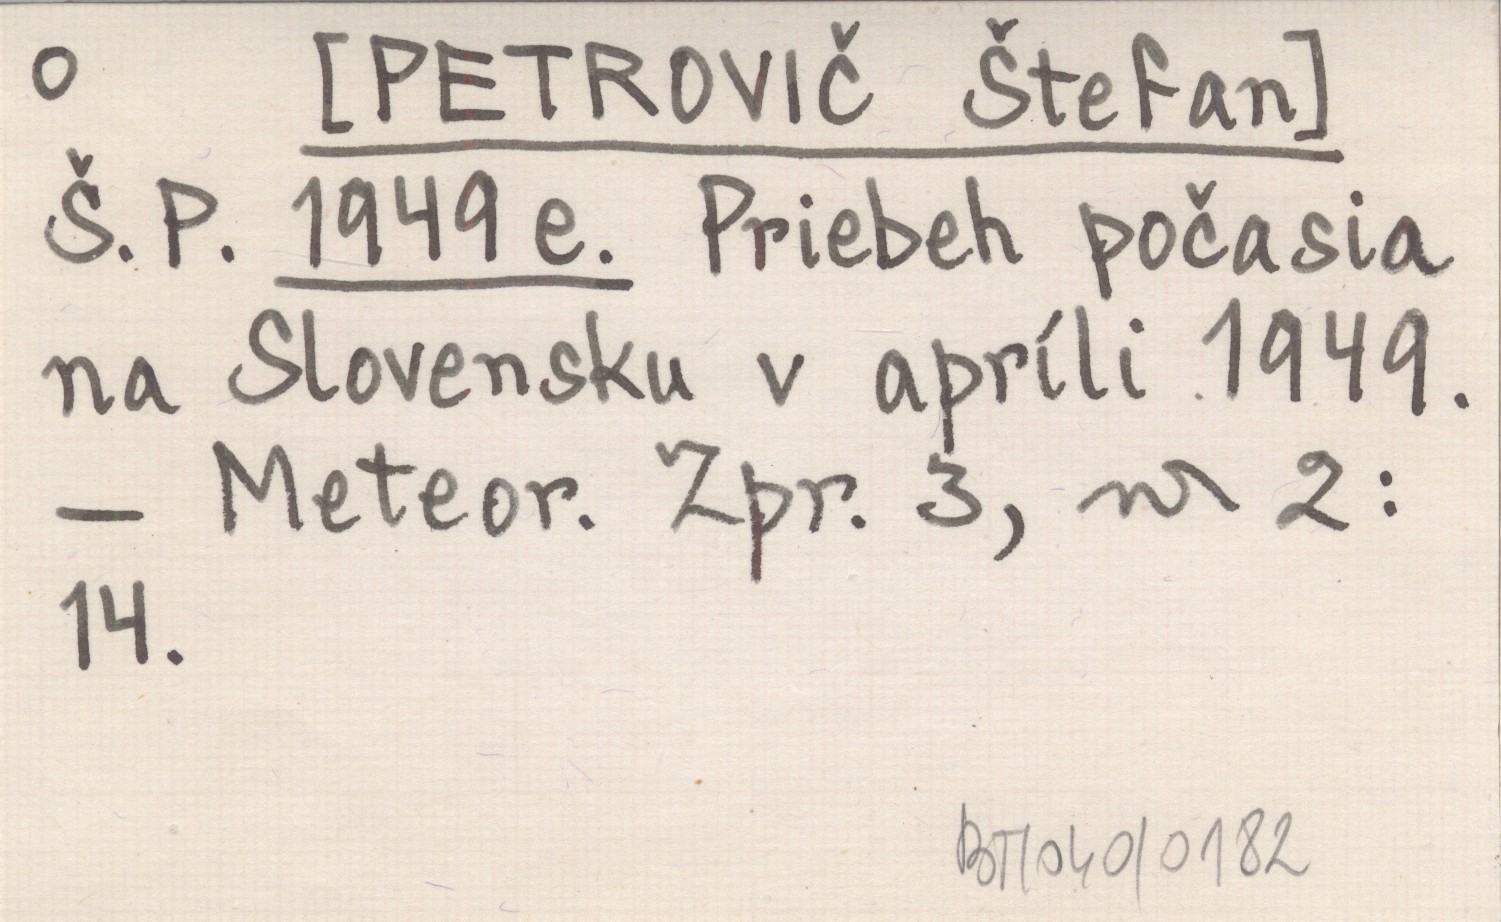 o [PETROVIČ Štefan]
Š.P. 1949e. Priebeh počasia
na Slovensku v apríli 1949.
— Meteor. Zpr. 3, nr 2:
14.
BT/040/0182